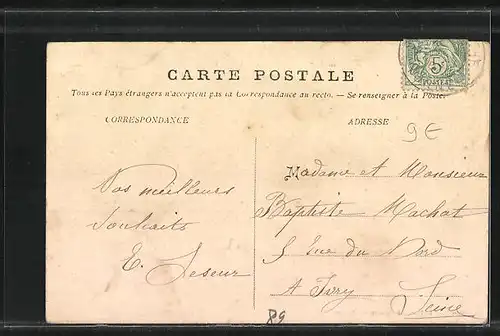 CARTE POSTALE
Tous les Pays étrangers n'acceptent pas la Correspondance au recto. — Se renseigner à la Poste.
CORRESPONDANCE
ADRESSE
5
POSTES
9€
Nos meilleurs
souhaits
E. Leseur
Madame et Monsieur
Baptiste Machat
5 Rue du Nord
A Ivry
Seine
89